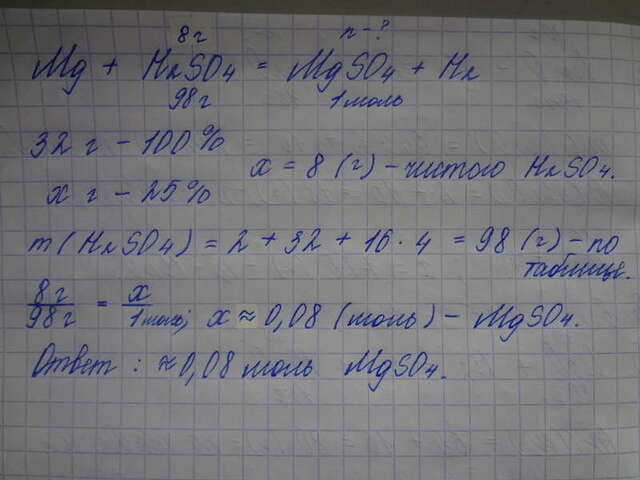 8 г n - ?
Mg + H₂SO₄ = MgSO₄ + H₂
98 г 1 моль
32 г - 100 %
x = 8 (г) - чистого H₂SO₄.
x г - 25 %
m (H₂SO₄) = 2 + 32 + 16 · 4 = 98 (г) - по
таблице.
8 г / 98 г = x / 1 моль; x ≈ 0,08 (моль) - MgSO₄.
Ответ : ≈ 0,08 моль MgSO₄.